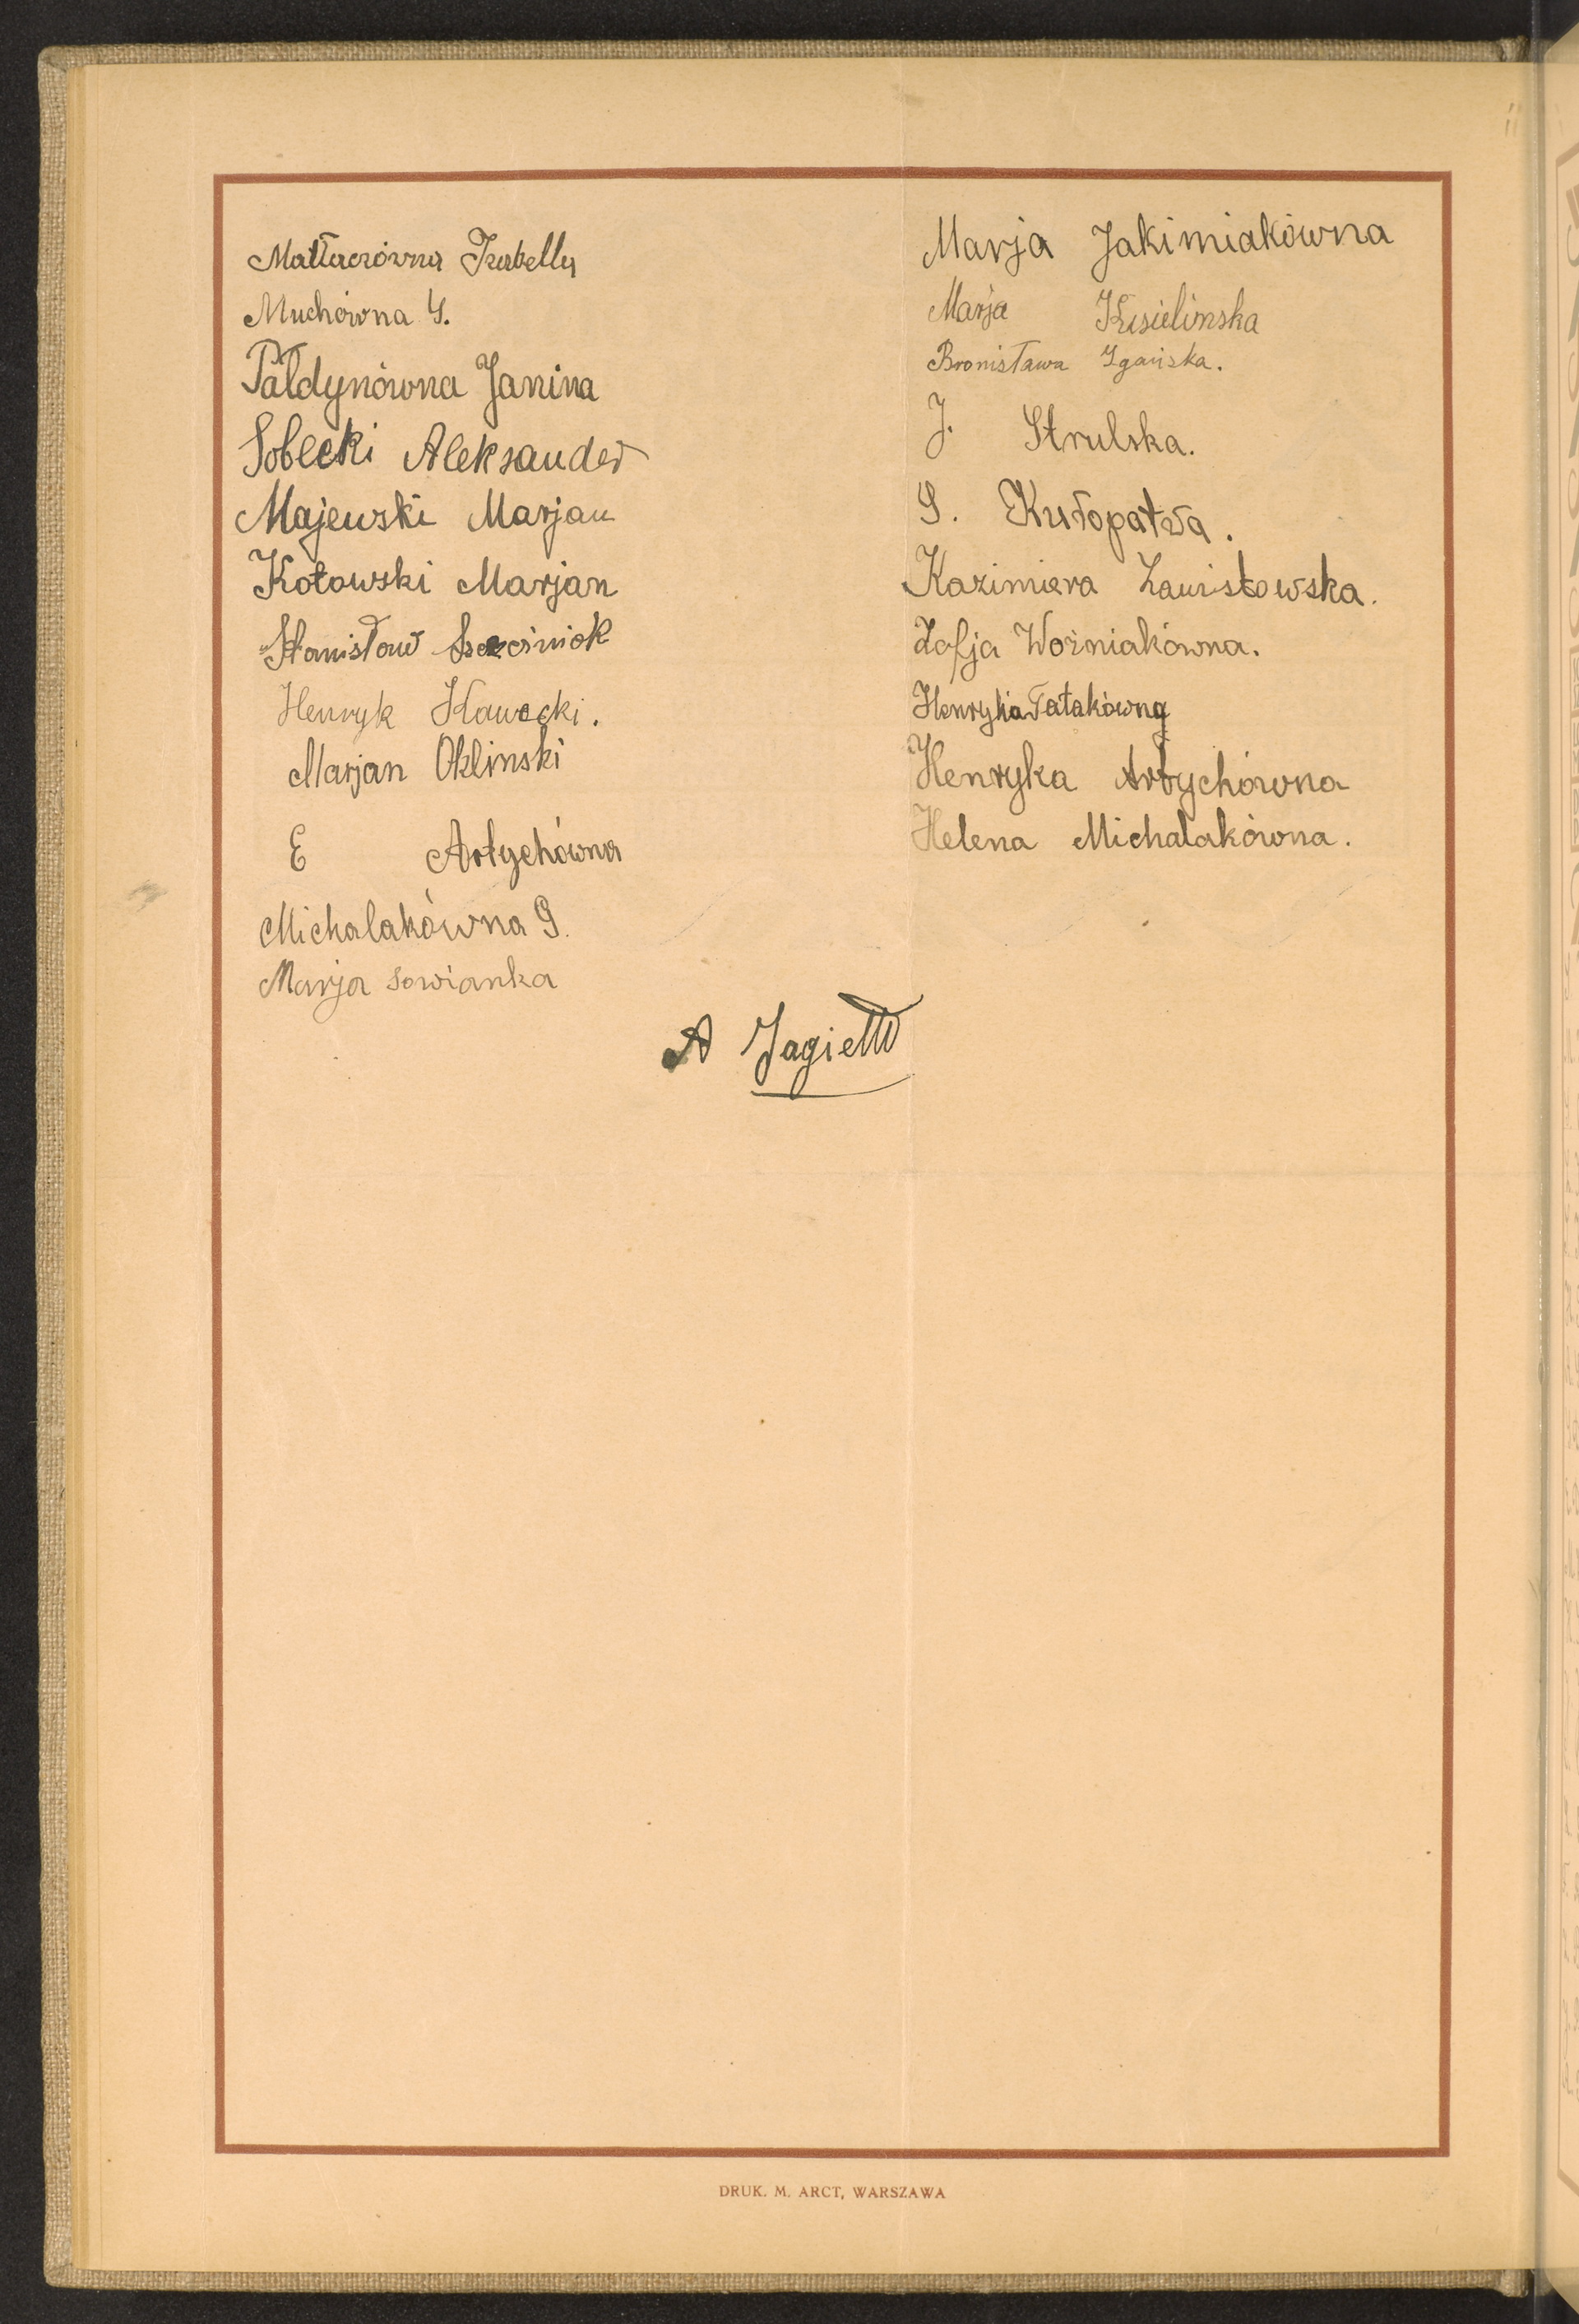 Mattaczówna Izabella
Muchówna G.
Pałdynówna Janina
Sobecki Aleksander
Majewski Marjan
Kotowski Marjan
Stanisław
Henryk Kawecki.
Marjan Oklinski
E Artychówna
Michalakówna G.
Marja Sowianka
Marja Jakimiakówna
Marja Kisielinska
Bronisława Igańska.
J. Strulska.
S. Kuropatwa.
Kazimiera Lauristowska.
Zofja Woźniakówna.
Henryka Tatakówna
Henryka Artychówna
Helena Michalakówna.
A Jagiełło
DRUK. M. ARCT, WARSZAWA